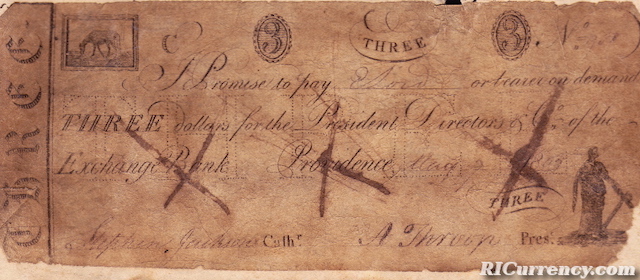 THREE
3 THREE 3 No.
I Promise to pay or bearer on demand
THREE dollars for the President Directors & Co. of the
Exchange Bank Providence
THREE
Stephen Jackson Cashr. A Throop Prest.
RICurrency.com